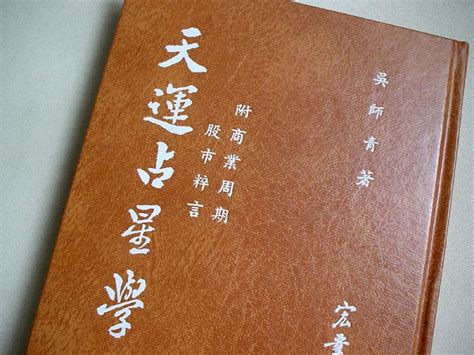 吳師青著
宏
附商業周期
股市粹言
天運占星學